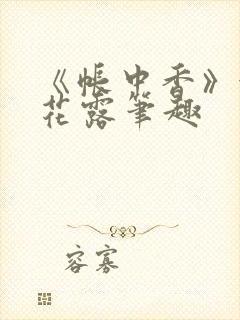 《帐中香》
花露笔趣
容寡